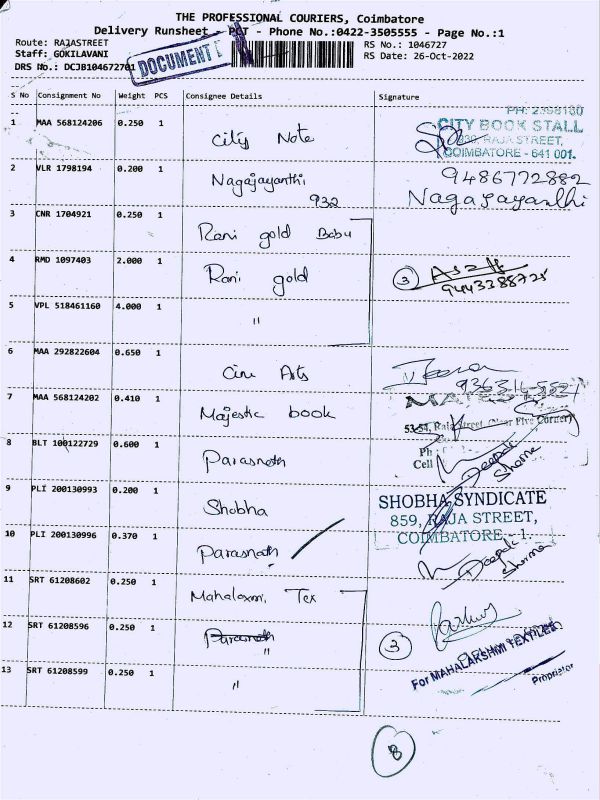 THE PROFESSIONAL COURIERS, Coimbatore
Delivery Runsheet - PCT - Phone No.:0422-3505555 - Page No.:1
Route: RAJASTREET
RS No.: 1046727
Staff: GOKILAVANI
RS Date: 26-Oct-2022
DRS No.: DCJB104672701
DOCUMENT
S No Consignment No Weight PCS Consignee Details Signature
1 MAA 568124206 0.250 1 City Note
PH: 2398160
CITY BOOK STALL
RAJA STREET,
COIMBATORE - 641 001.
2 VLR 1798194 0.200 1 Nagajayanthi
932
9486772882
Nagajayanthi
3 CNR 1704921 0.250 1 Rani gold Babu
4 RMD 1097403 2.000 1 Rani gold
3
9443388725
5 VPL 518461160 4.000 1 "
6 MAA 292822604 0.650 1 Cine Arts
7 MAA 568124202 0.410 1 Majestic book
53-54, Raja Street, (Near Five Corner)
Ph
Cell
8 BLT 100122729 0.600 1 Parasnath
Deepak
Sharma
9 PLI 200130993 0.200 1 Shobha
SHOBHA SYNDICATE
859, RAJA STREET,
COIMBATORE - 1.
10 PLI 200130996 0.370 1 Parasnath
Deepak
Sharma
11 SRT 61208602 0.250 1 Mahalaxmi Tex
12 SRT 61208596 0.250 1 Parasnath
"
3
For MAHALAKSHMI TEXTILES
Proprietor
13 SRT 61208599 0.250 1 "
8